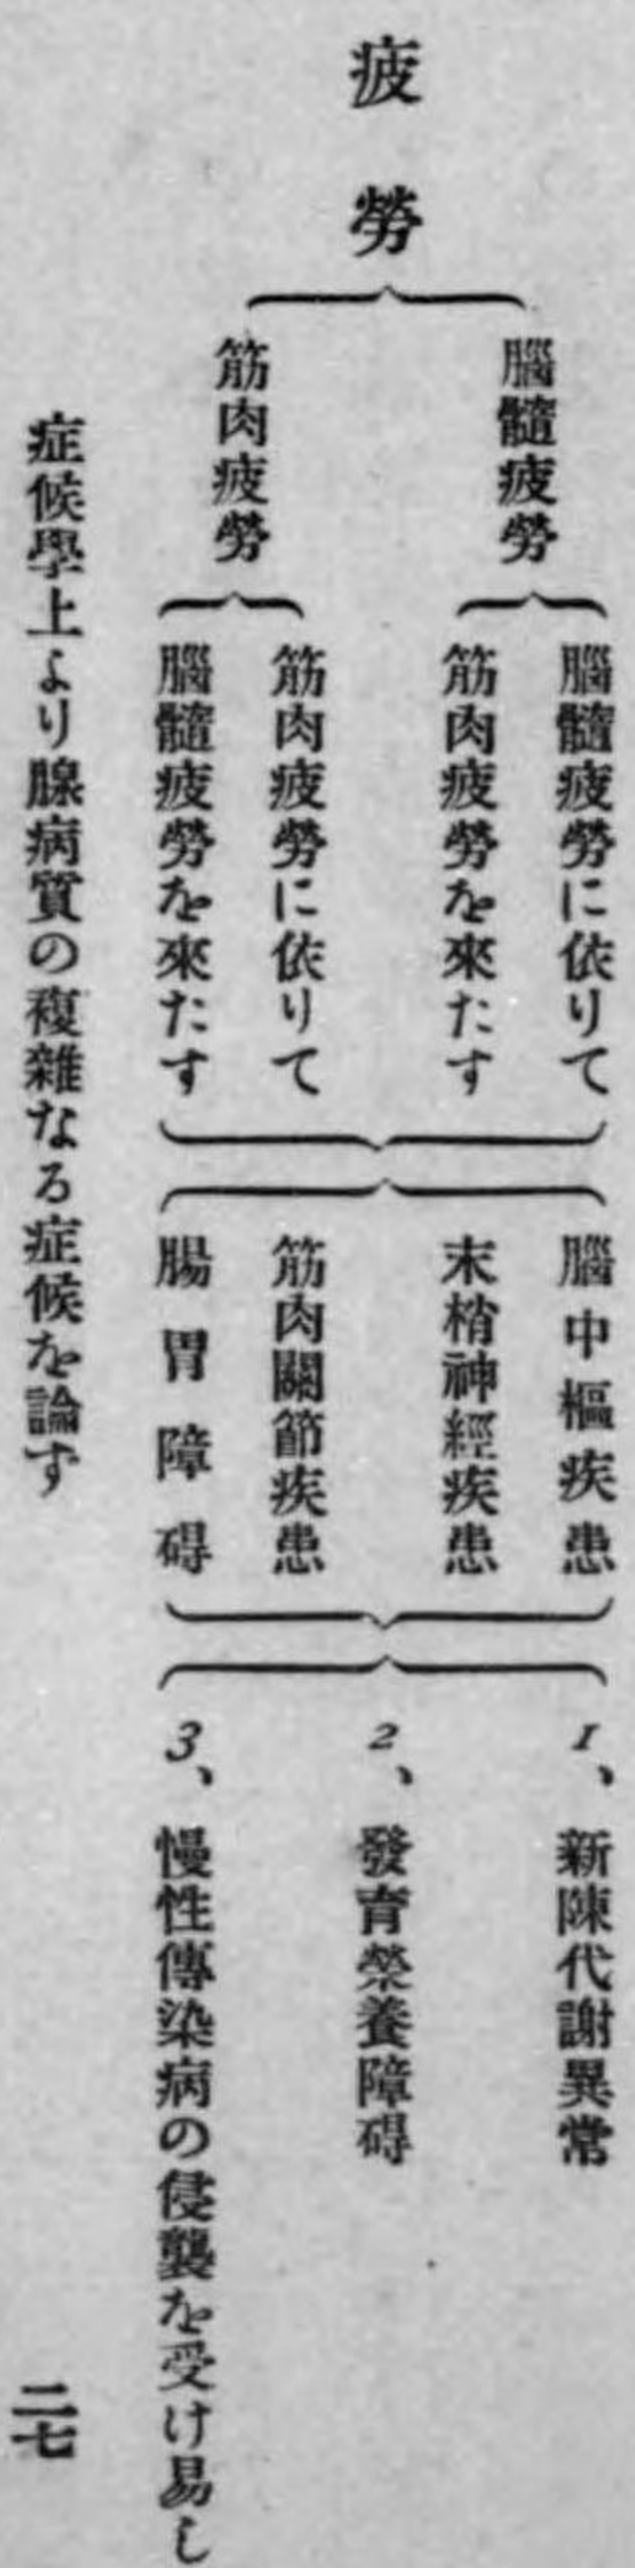 疲勞
腦髓疲勞
筋肉疲勞
腦髓疲勞に依りて
筋肉疲勞を來たす
筋肉疲勞に依りて
腦髓疲勞を來たす
腦中樞疾患
末梢神經疾患
筋肉關節疾患
腸胃障碍
1、新陳代謝異常
2、發育榮養障碍
3、慢性傳染病の侵襲を受け易し
症候學上より腺病質の複雜なる症候を論ず
二七